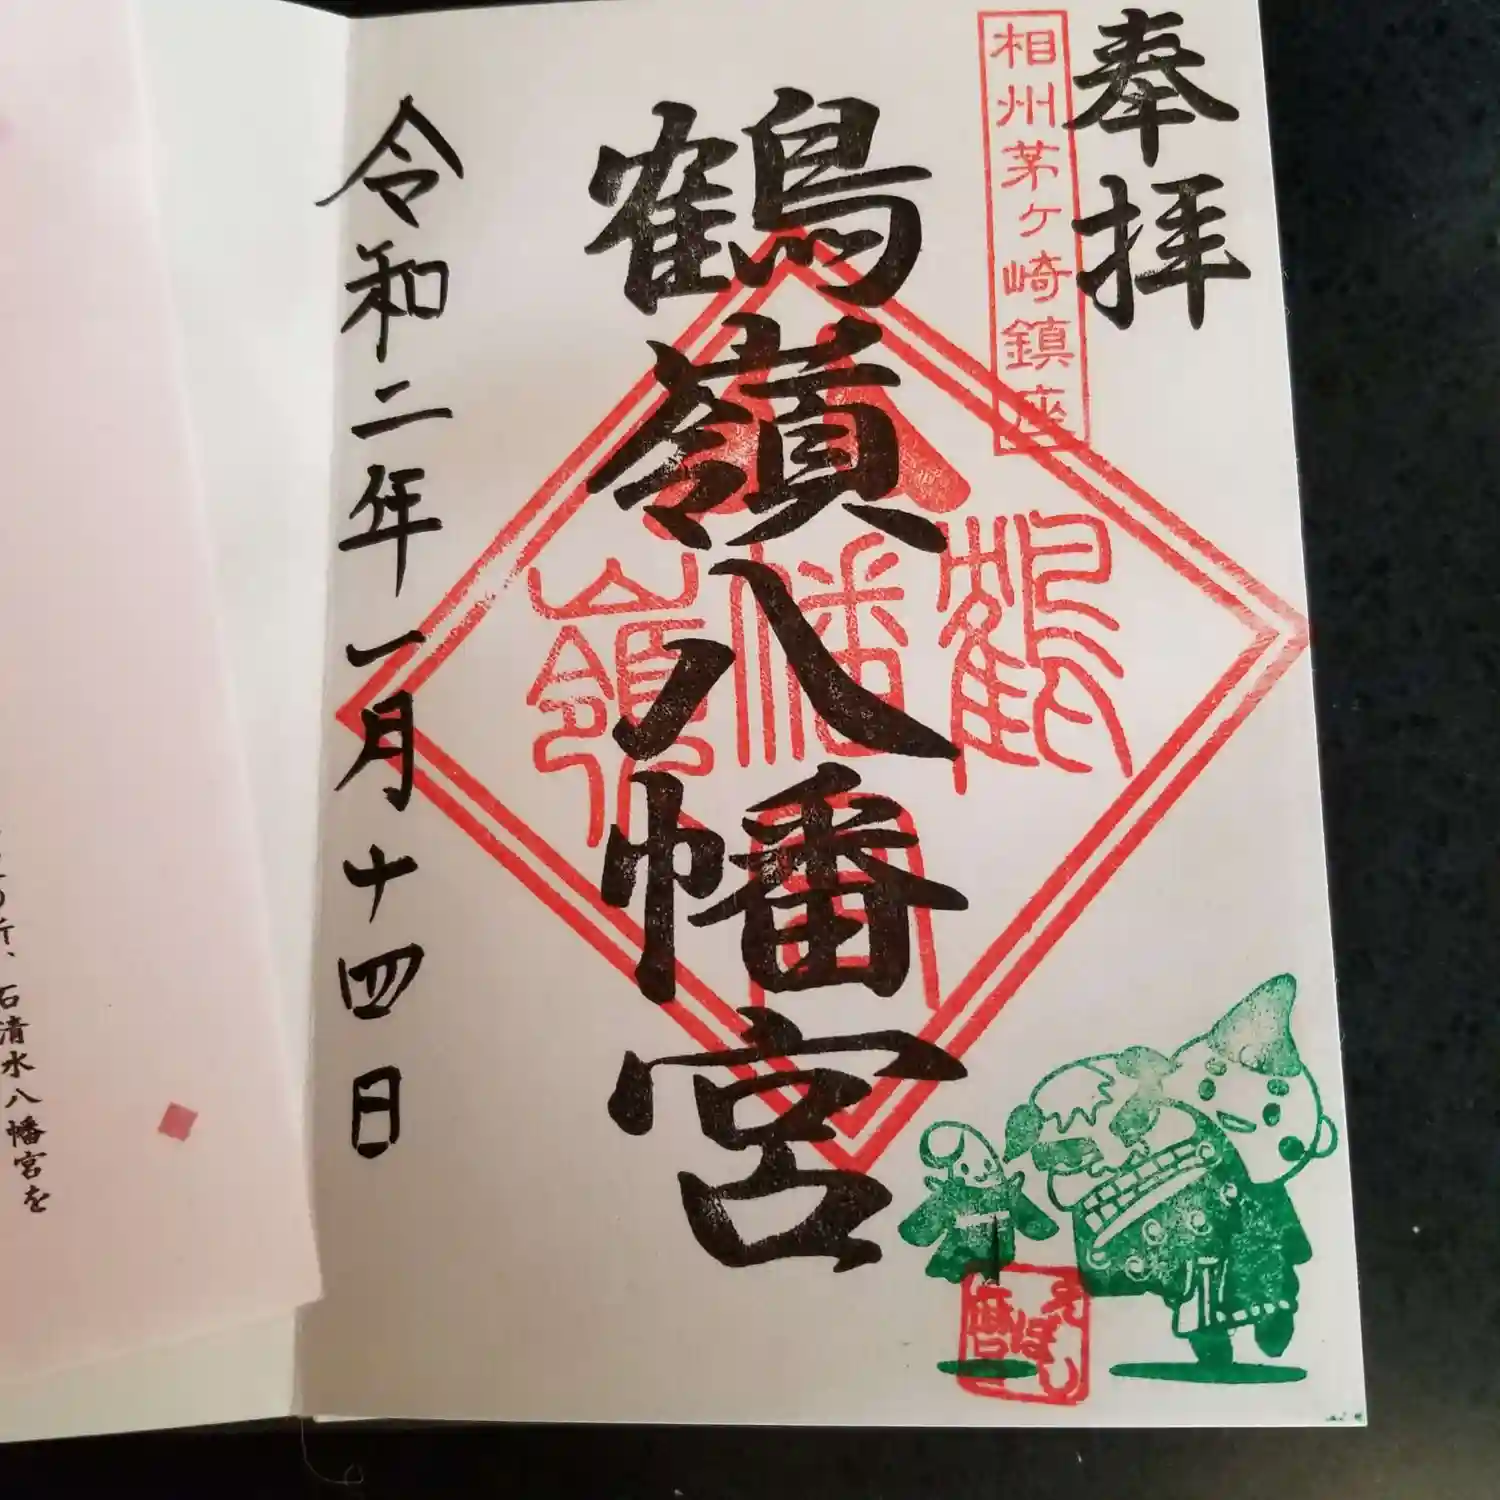 奉拝
相州茅ヶ崎鎮座
鶴嶺八幡宮
鶴
幡
嶺
令和二年一月十四日
えぼし
暦
石清水八幡宮を